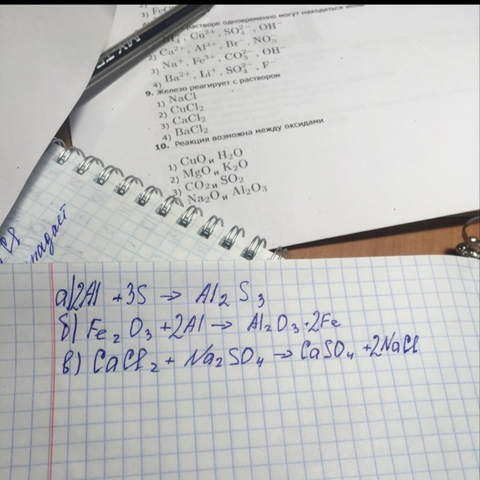 3) Fe
растворе одновременно могут находиться
Cu²⁺, SO₄²⁻, OH⁻
2) Ca²⁺, Al³⁺, Br⁻, NO₃
3) Na⁺, Fe³⁺, CO₃²⁻, OH⁻
4) Ba²⁺, Li⁺, SO₄²⁻, F⁻
9. Железо реагирует с раствором
1) NaCl
2) CuCl₂
3) CaCl₂
4) BaCl₂
10. Реакция возможна между оксидами
1) CuO и H₂O
2) MgO и K₂O
3) CO₂ и SO₂
Na₂O и Al₂O₃
а) 2Al + 3S → Al₂S₃
б) Fe₂O₃ + 2Al → Al₂O₃ + 2Fe
в) CaCl₂ + Na₂SO₄ → CaSO₄ + 2NaCl